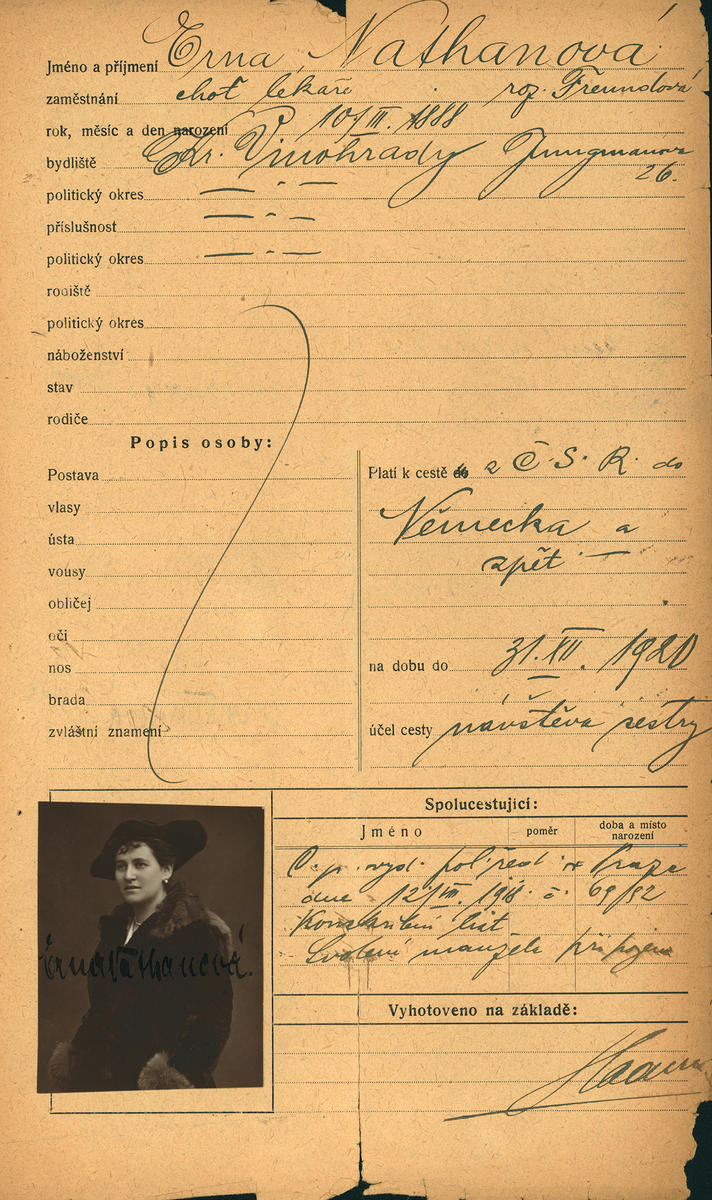 Jméno a příjmení Erna Nathanová
zaměstnání choť lékaře roz. Freundová
rok, měsíc a den narození 10/III. 1888
bydliště Kr. Vinohrady Jungmanova
26.
politický okres — " —
příslušnost — " —
politický okres — " —
rodiště
politický okres
náboženství
stav
rodiče
Popis osoby:
Postava
vlasy
ústa
vousy
obličej
oči
nos
brada
zvláštní znamení
Platí k cestě do z Č. S. R. do
Německa a
zpět —
na dobu do 31. XII. 1920
účel cesty návštěva sestry
Spolucestující:
Jméno
poměr
doba a místo
narození
C. p. vyd. pol. řed. v Praze
dne 12/VIII. č. 69/82
list
Svolení manžela připojeno
Erna Nathanová.
Vyhotoveno na základě: